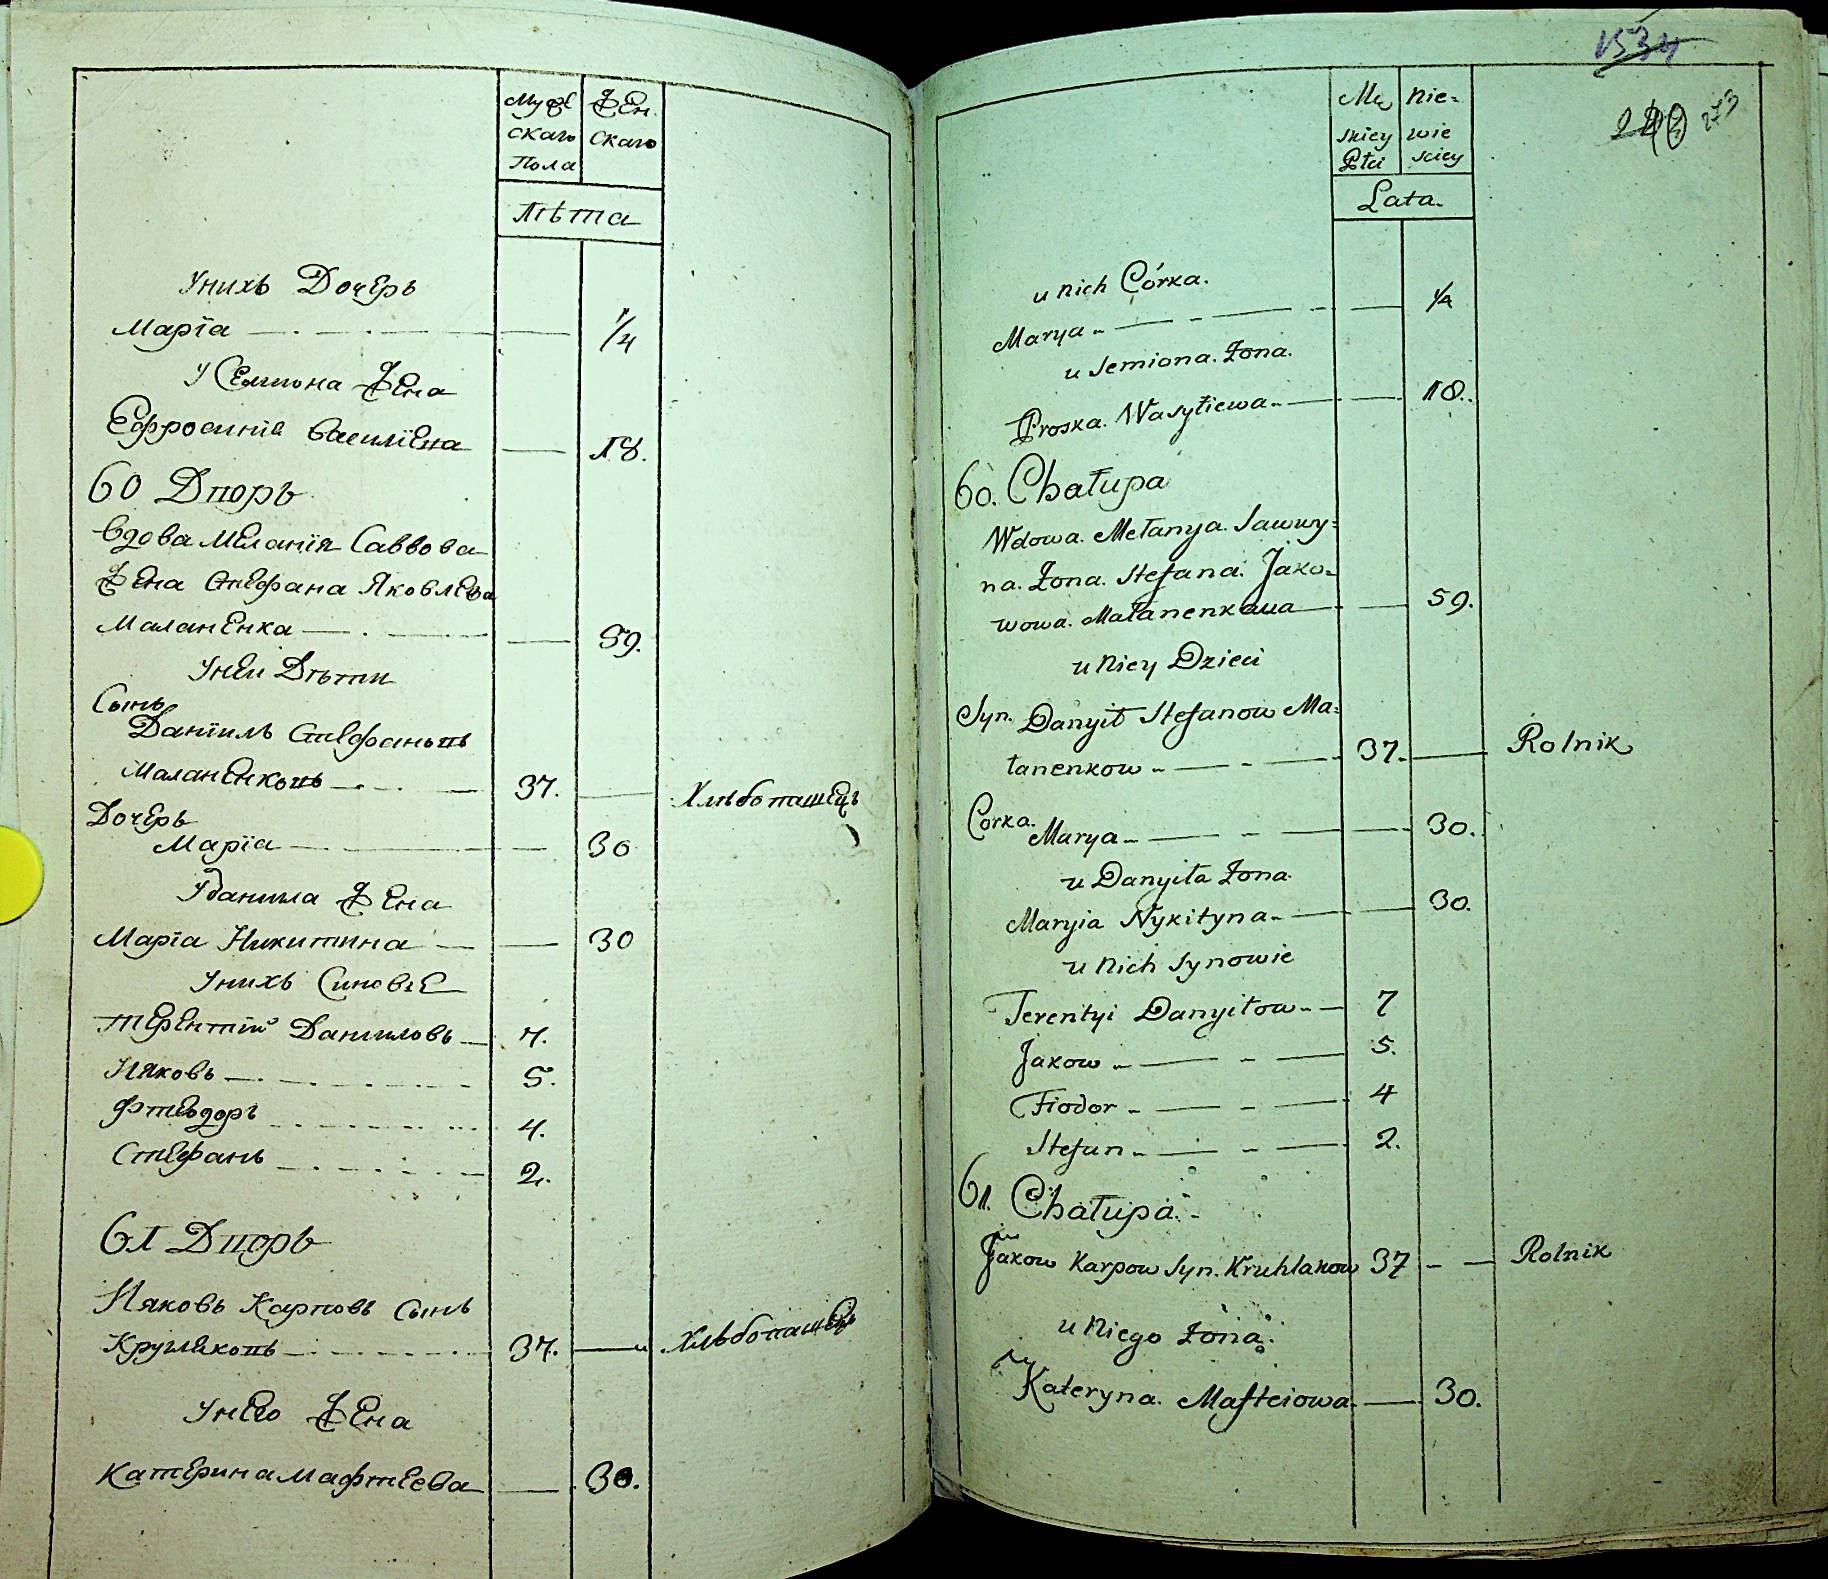 Мужескаго Пола
Женскаго
Лѣта
Унихъ Дочерь
Марїа 1/4
У Семиона Жена
Ефросинїя Василїева 18.
60 Дворъ
Вдова Меланїя Саввова
Жена Стефана Яковлева
Маланенка 59.
Уней Дѣти
Сынъ
Данїилъ Стефановъ
Маланенковъ 37. Хлѣбопашецъ
Дочерь
Марїа 30
Уданила Жена
Марїа Никитина 30
Унихъ Синовье
Терентїй Даниловъ 7.
Іяковъ 5.
Фтеодоръ 4.
Стефанъ 2.
61 Дворъ
Іяковъ Карповъ Сынъ
Кругляковъ 37. Хлѣбопашецъ
Унего Жена
Катерина Мафтеева 30.
1534
273
Mę
skiey
Płci
Nie=
wie
sciey
Lata.
u nich Córka.
Marya 1/4
u Semiona. Żona.
Proska. Wasyliewa 18.
60. Chałupa
Wdowa. Mełanya. Sawwy=
na. Żona. Stefana. Jako=
wowa. Małanenkowa 59.
u Niey Dzieci
Syn. Danyił Stefanow Ma=
łanenkow 37. Rolnik
Corka. Marya 30.
u Danyiła Żona.
Maryia Nykityna 30.
u Nich Synowie
Terentyi Danyiłow 7
Jakow 5.
Fiodor 4
Stefan 2.
61. Chałupa.
Jakow Karpow Syn. Kruhlakow 37 Rolnik
u Niego Żona.
Kateryna. Mafteiowa 30.